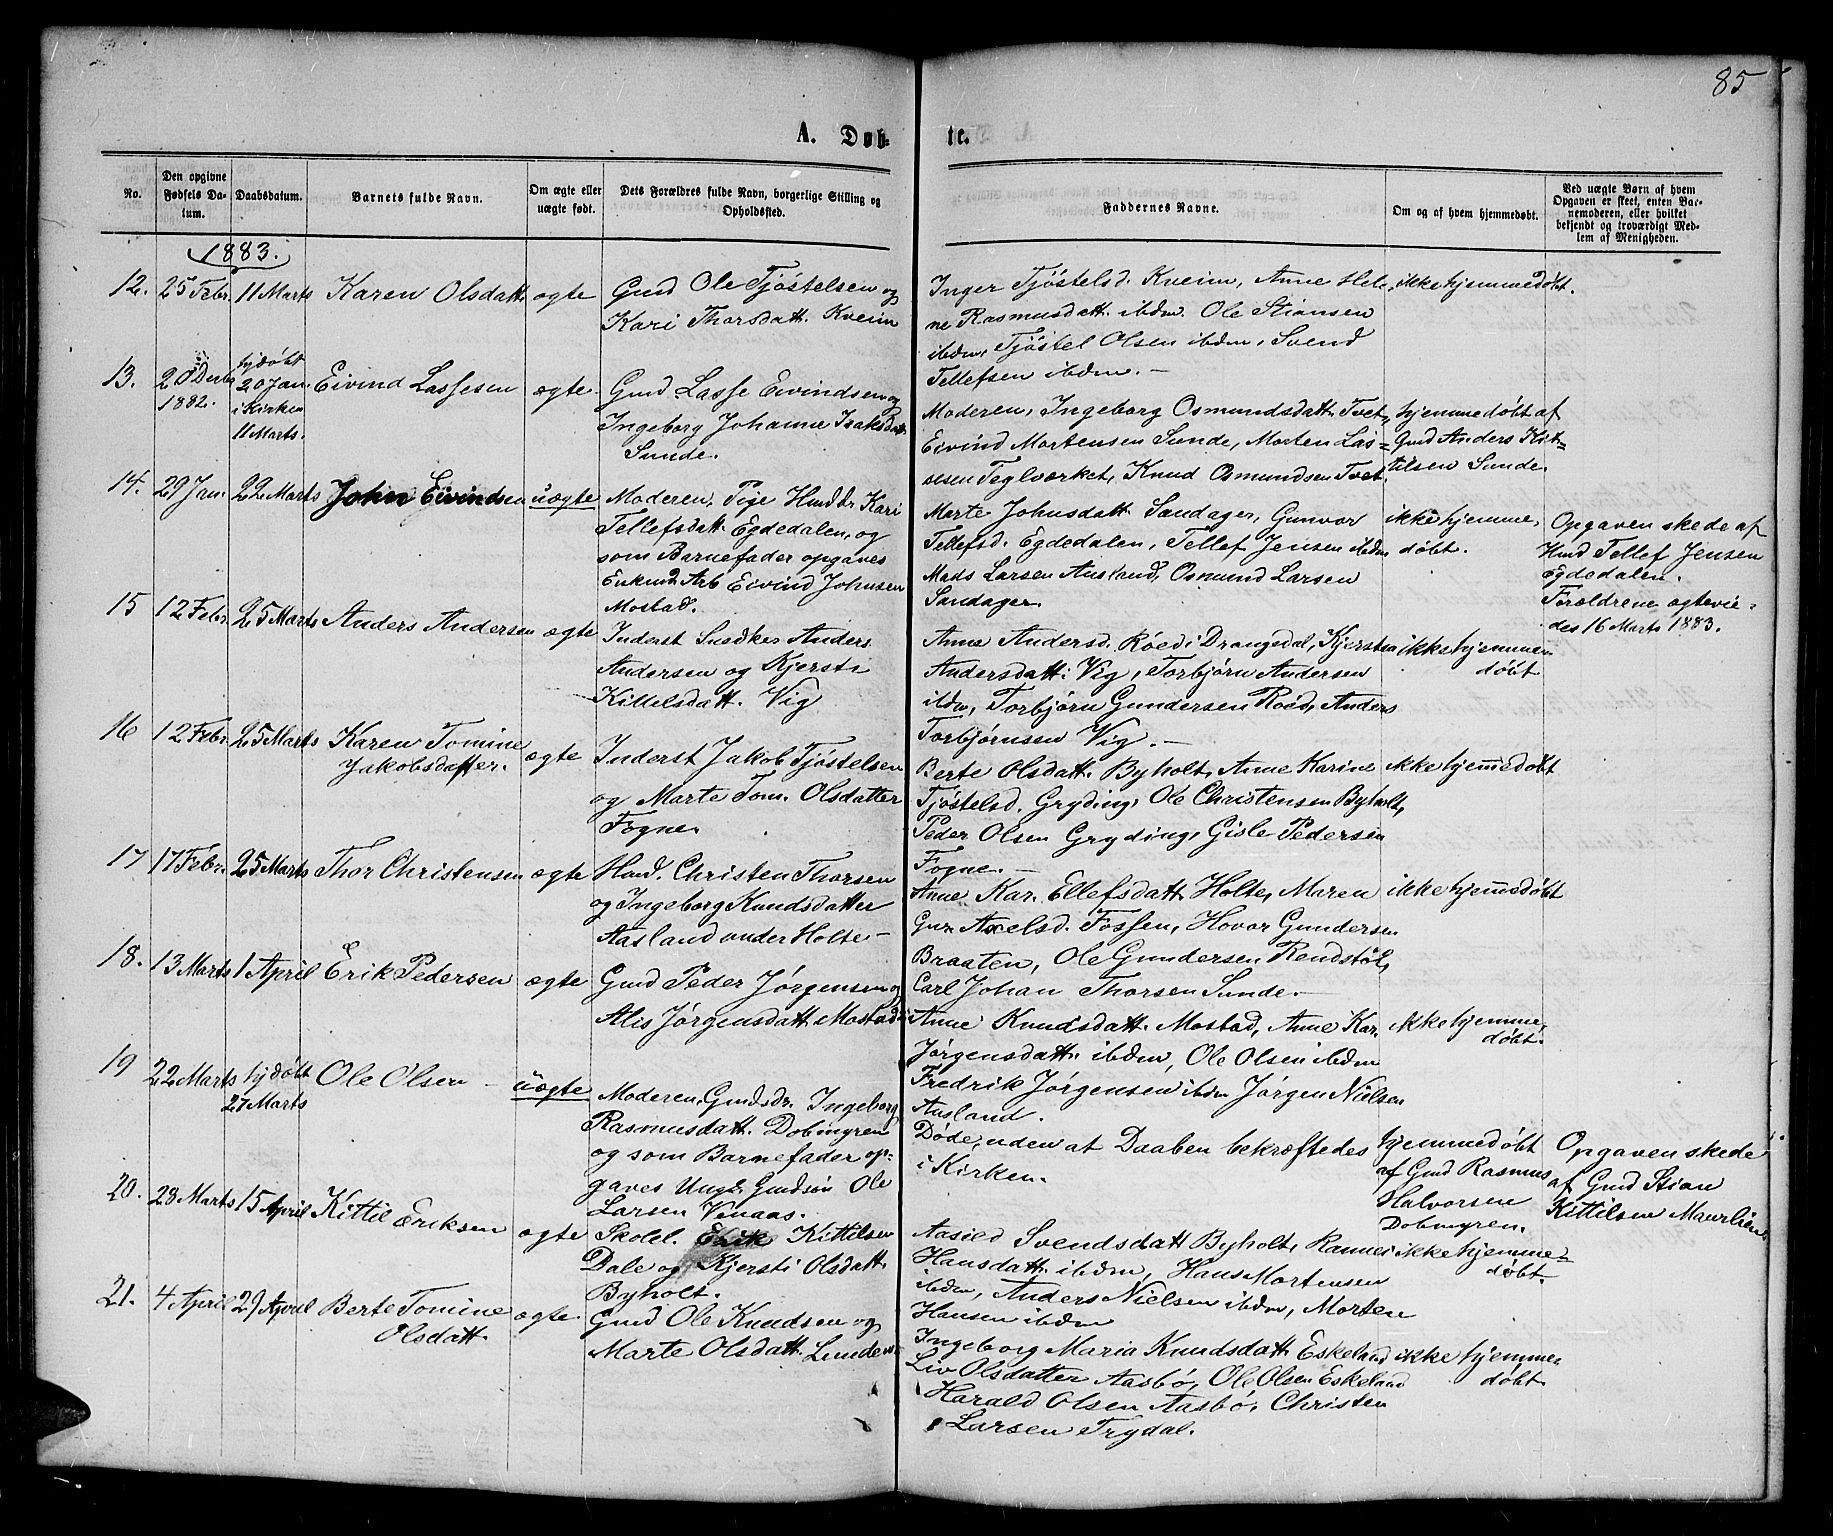 85
A. Døb- te.
No.
Den opgivne Fødsels Da- tum.
Daabsdatum.
Barnets fulde Navn.
Om ægte eller uægte født.
Dets Forældres fulde Navn, borgerlige Stilling og Opholdssted.
Faddernes Navne.
Om og af hvem hjemmedøbt.
Ved uægte Børn af hvem Opgaven er skeet, enten Bar- nemoderen, eller hvilket bekjendt og troværdigt Med- lem af Menigheden.
1883.
12. 25 Febr. 11 Marts Karen Olsdatt. ægte
Gmd Ole Tjøstelsen og
Kari Thorsdatt. Kveim
Inger Tjøstelsd. Kveim, Anne Hele-
ne Rasmusdatt. ibdm. Ole Stiansen
ibdm, Tjøstel Olsen ibdm, Svend
Tellefsen ibdm. –
ikke hjemmedøbt.
13. 20 Decbr 1882. hjdøbt 20 Jan. i Kirken 11 Marts. Eivind Lassesen ægte
Gmd Lasse Eivindsen og
Ingeborg Johanne Isaksdatt.
Sunde.
Moderen, Ingeborg Osmundsdatt. Tvet,
Eivind Mortensen Sunde, Morten Las-
sesen Teglværket, Knud Osmundsen Tvet.
hjemmedøbt af
Gmd Anders Kit-
tilsen Sunde.
14. 29 Jan. 22 Marts John Eivindsen uægte
Moderen, Pige Huusdr. Kari
Tellefsdatt. Egdedalen, og
som Barnefader opgaves
Enkmd. Arb Eivind Johnsen
Mostad.
Marte Johnsdatt. Sandager, Gunvor
Tellefsd. Egdedalen, Tellef Jensen ibdm
Mads Larsen Ausland, Osmund Larsen
Sandager.
ikke hjemme-
døbt.
Opgaven skede af
Hmd Tellef Jensen
Egdedalen.
Forældrene ægtevie-
des 16 Marts 1883.
15 12 Febr. 25 Marts Anders Andersen ægte
Inderst Snedker Anders
Andersen og Kjersti
Kittelsdatt. Vig
Anne Andersd. Röed i Drangedal, Kjersti
Andersdatt. Vig, Torbjørn Andersen
ibdm, Torbjørn Gundersen Röed, Anders
Torbjørnsen Vig. –
ikke hjemme-
døbt
16 12 Febr. 25 Marts Karen Tomine
Jakobsdatter. ægte
Inderst Jakob Tjøstelsen
og Marte Tom. Olsdatter
Fogne.
Berte Olsdatt. Byholt, Anne Karine
Tjøstelsd. Gryding, Ole Christensen Byholt,
Peder Olsen Gryding, Gisle Pedersen
Fogne. –
ikke hjemmedøbt
17 17 Febr. 25 Marts Thor Christensen ægte
Hmd. Christen Thorsen
og Ingeborg Knudsdatter
Aasland under Holte –
Anne Kar. Ellefsdatt. Holte, Maren
Gur. Axelsd. Fossen, Hovor Gundersen
Braaten, Ole Gundersen Rendstöl,
Carl Johan Thorsen Sunde. –
ikke hjemmedøbt
18. 13 Marts 1 April Erik Pedersen ægte
Gmd Peder Jørgensen og
Alis Jørgensdatt. Mostad
Anne Knudsdatt. Mostad, Anne Kar.
Jørgensdatt. ibdm, Ole Olsen ibdm
Fredrik Jørgensen ibdm Jørgen Nielsen
Ausland.
ikke hjemme-
døbt.
19 22 Marts hjdøbt 27 Marts Ole Olsen – uægte
Moderen, Gmdsdr. Ingeborg
Rasmusdatt. Dobmyren
og som Barnefader op-
gaves Ungk. Gmdsön Ole
Larsen Venaas.
Døde, uden at Daaben bekræftedes
i Kirken.
hjemmedøbt
af Gmd Rasmus
Halvorsen
Dobmyren.
Opgaven skede
af Gmd Stian
Kittilsen Maurlien
20. 28 Marts 15 April Kittil Eriksen ægte
Skoll. Erik Kittilsen
Dale og Kjersti Olsdatt.
Byholt.
Aasied Svendsdatt Byholt, Rannei
Hansdatt. ibdm, Hans Mortensen
ibdm, Anders Nielsen ibdm, Morten
Hansen ibdm
ikke hjemme-
døbt.
21. 4 April 29 April Berte Tomine
Olsdatt. ægte
Gmd Ole Knudsen og
Marte Olsdatt. Lunde
Ingeborg Maria Knudsdatt. Eskeland
Liv Olsdatter Aasbø, Ole Olsen Eskeland
Harald Olsen Aasbø, Christen
Larsen Trydal.
ikke hjemme-
døbt.